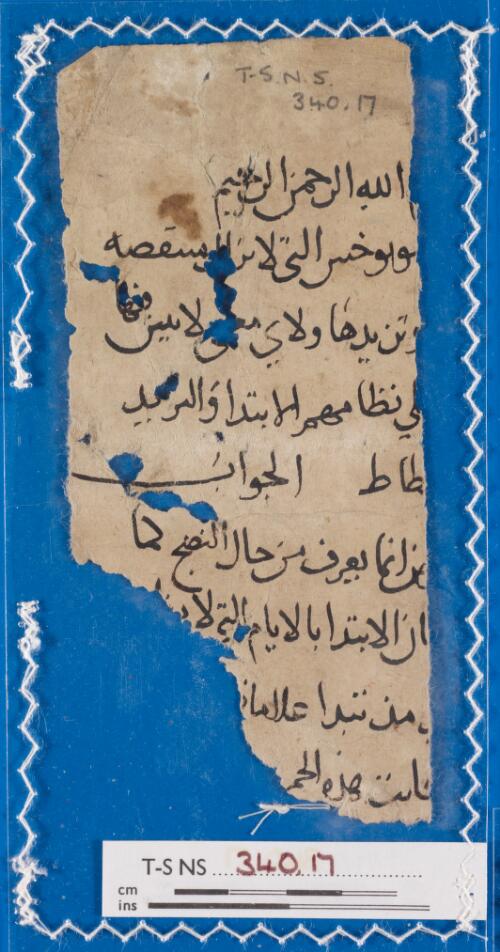 T-S.N.S.
340.17
الله الرحمن الرحيم
التي لا
وتزيدها ولاي معنى لا يبين فيها
نظامهم الابتدا والتزيد
طاط الجواب
انما يعرف من حال النضج كما
ان الابتدا بالايام التي لا
من تبتدا علاما
كانت هذه الحم
T-S NS 340.17
cm
ins